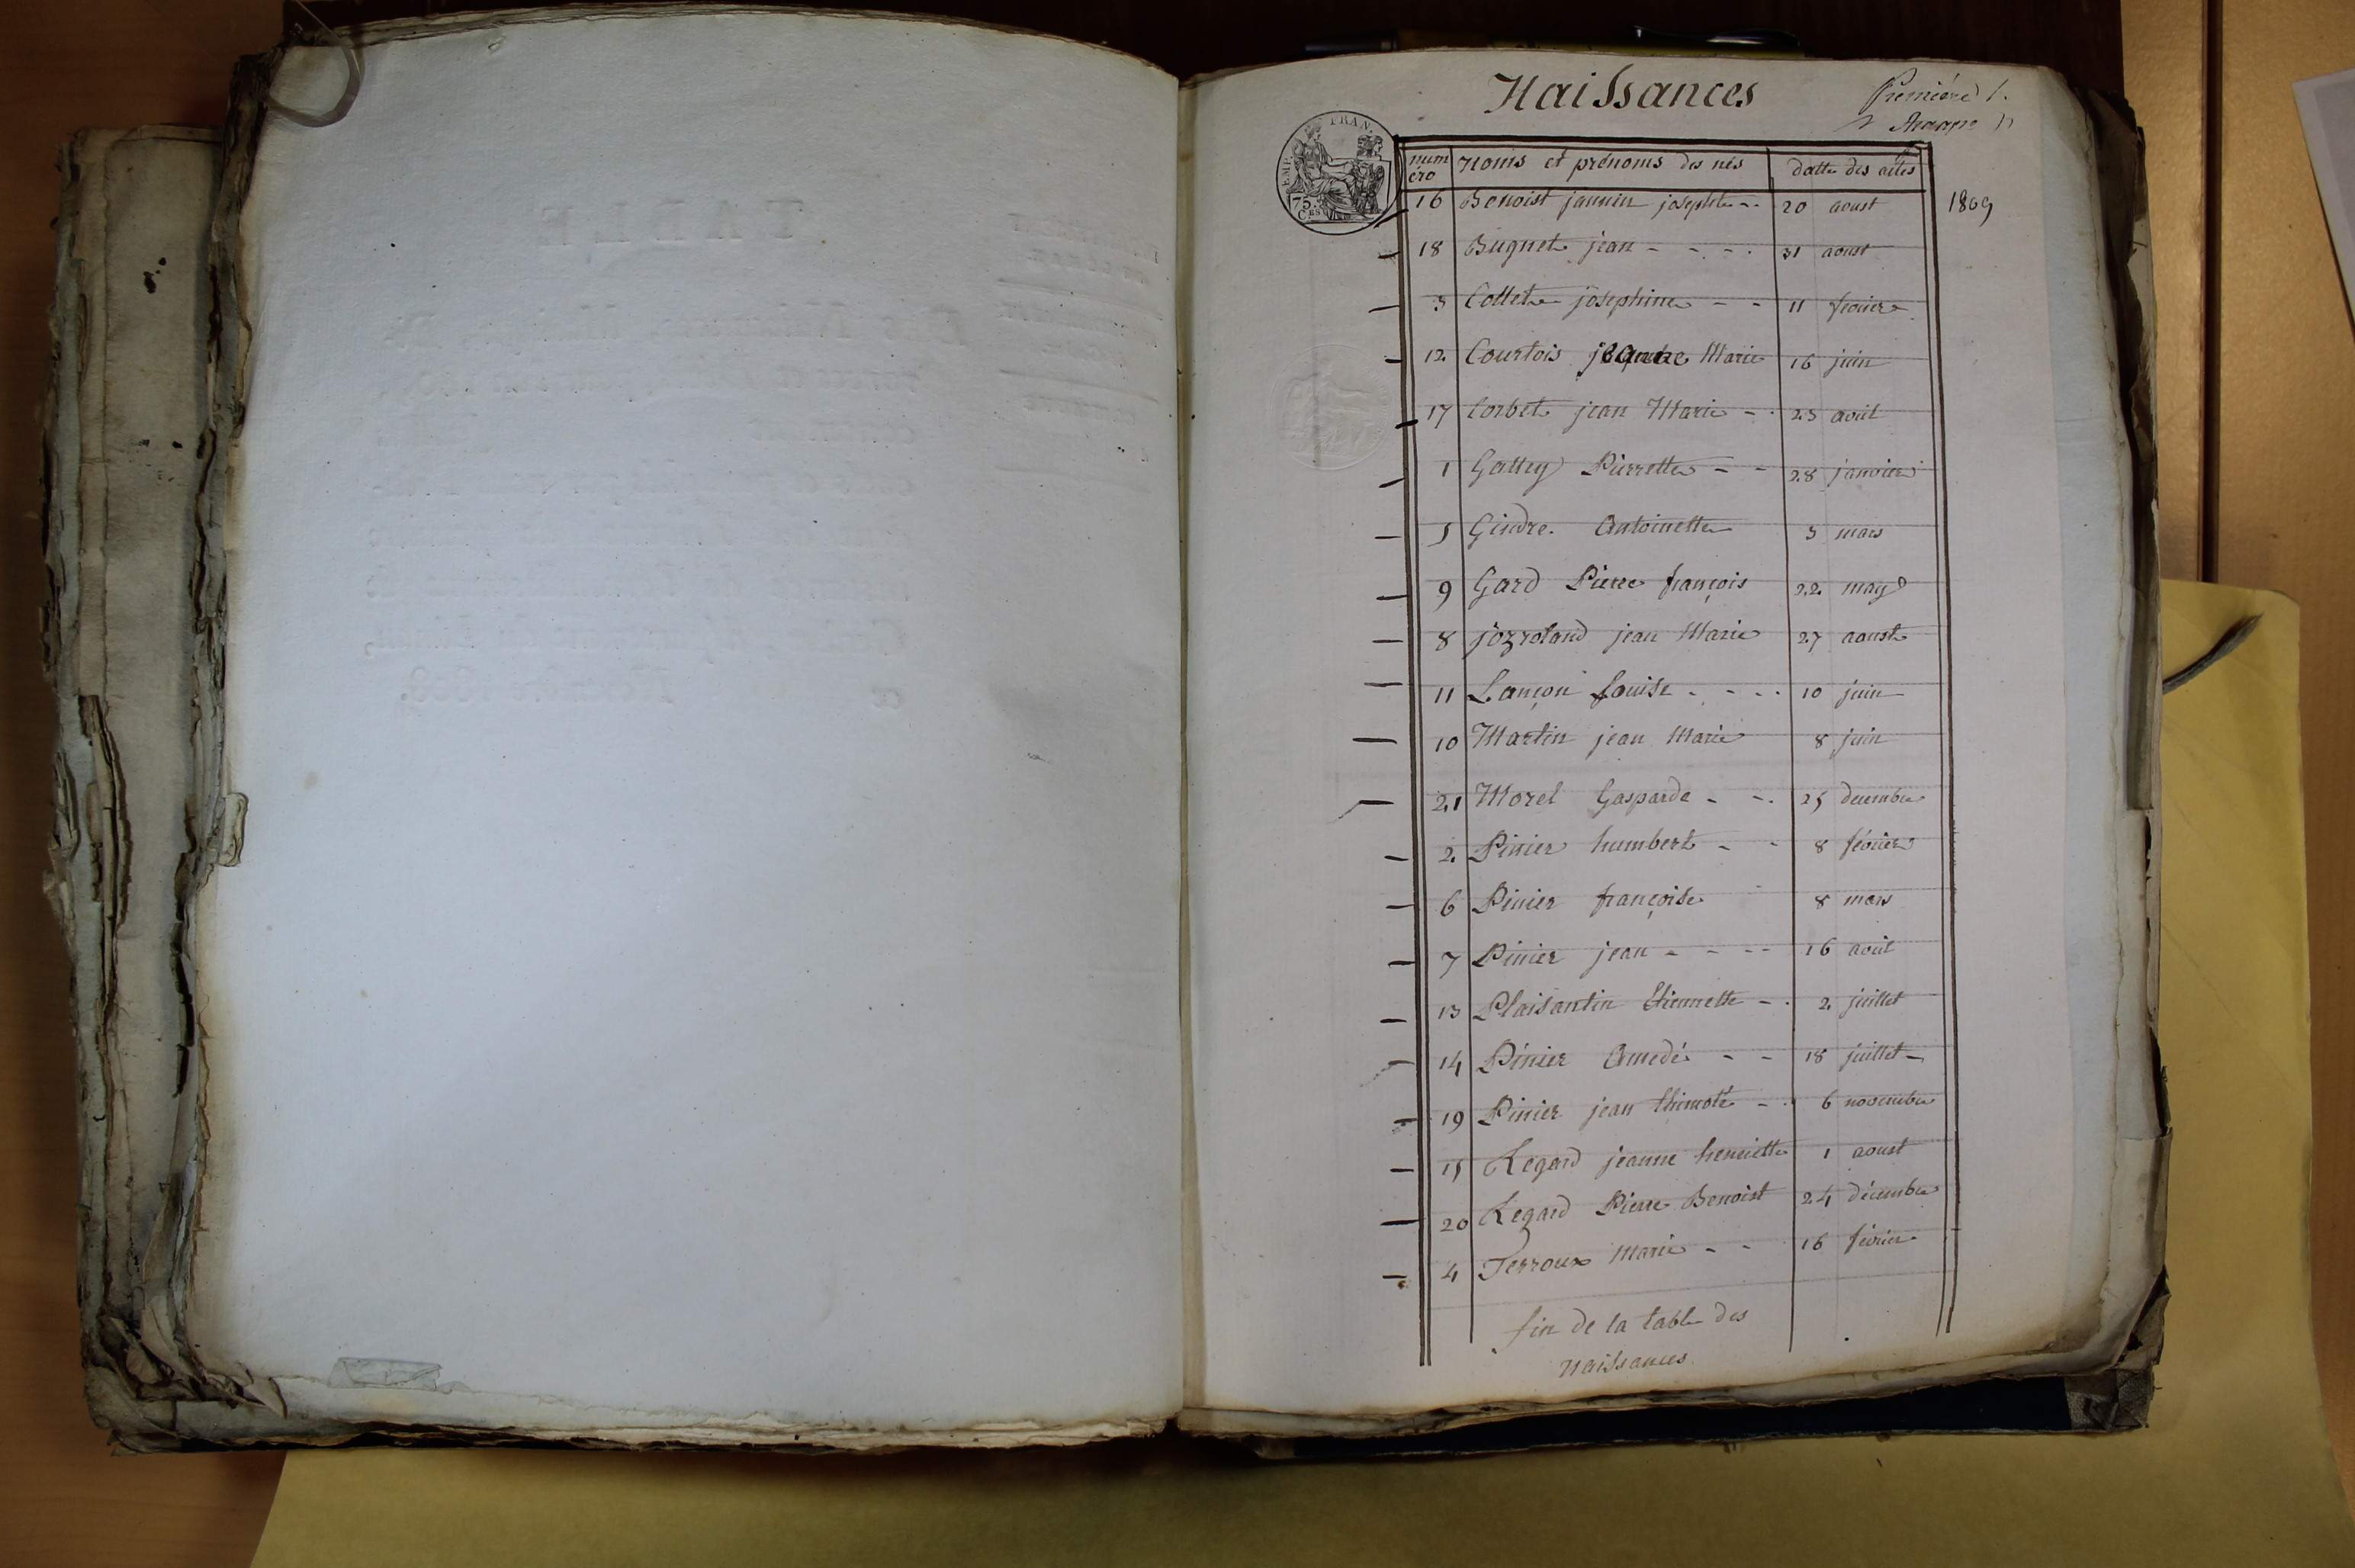 Naissances
Premiere
EMP. FRAN.
75.
C.ES
numéro Noms et prénoms des nés datte des actes
16 Benoist jannin josephte 20 aoust 1809
18 Bugnet jean 31 aoust
3 Collet josephine 11 fevrier
12 Courtois jeanne Marie 16 juin
17 Corbet jean Marie 23 août
1 Gattey Pierrette 28 janvier
5 Gindre Antoinette 3 mars
9 Gard Pierre françois 22 may
8 jozroland jean Marie 27 aoust
11 Lançon Louise 10 juin
10 Martin jean Marie 8 juin
21 Morel Gasparde 25 decembre
2 Pinier humbert 8 février
6 Pinier françoise 8 mars
7 Pinier jean 16 août
13 Plaisantin Etiennette 2 juillet
14 Pinier Amedé 18 juillet
19 Pinier jean thimoté 6 novembre
15 Regard jeanne henriette 1 aoust
20 Regard Pierre Benoist 24 décembre
4 Terroux Marie 16 février
fin de la table des
Naissances